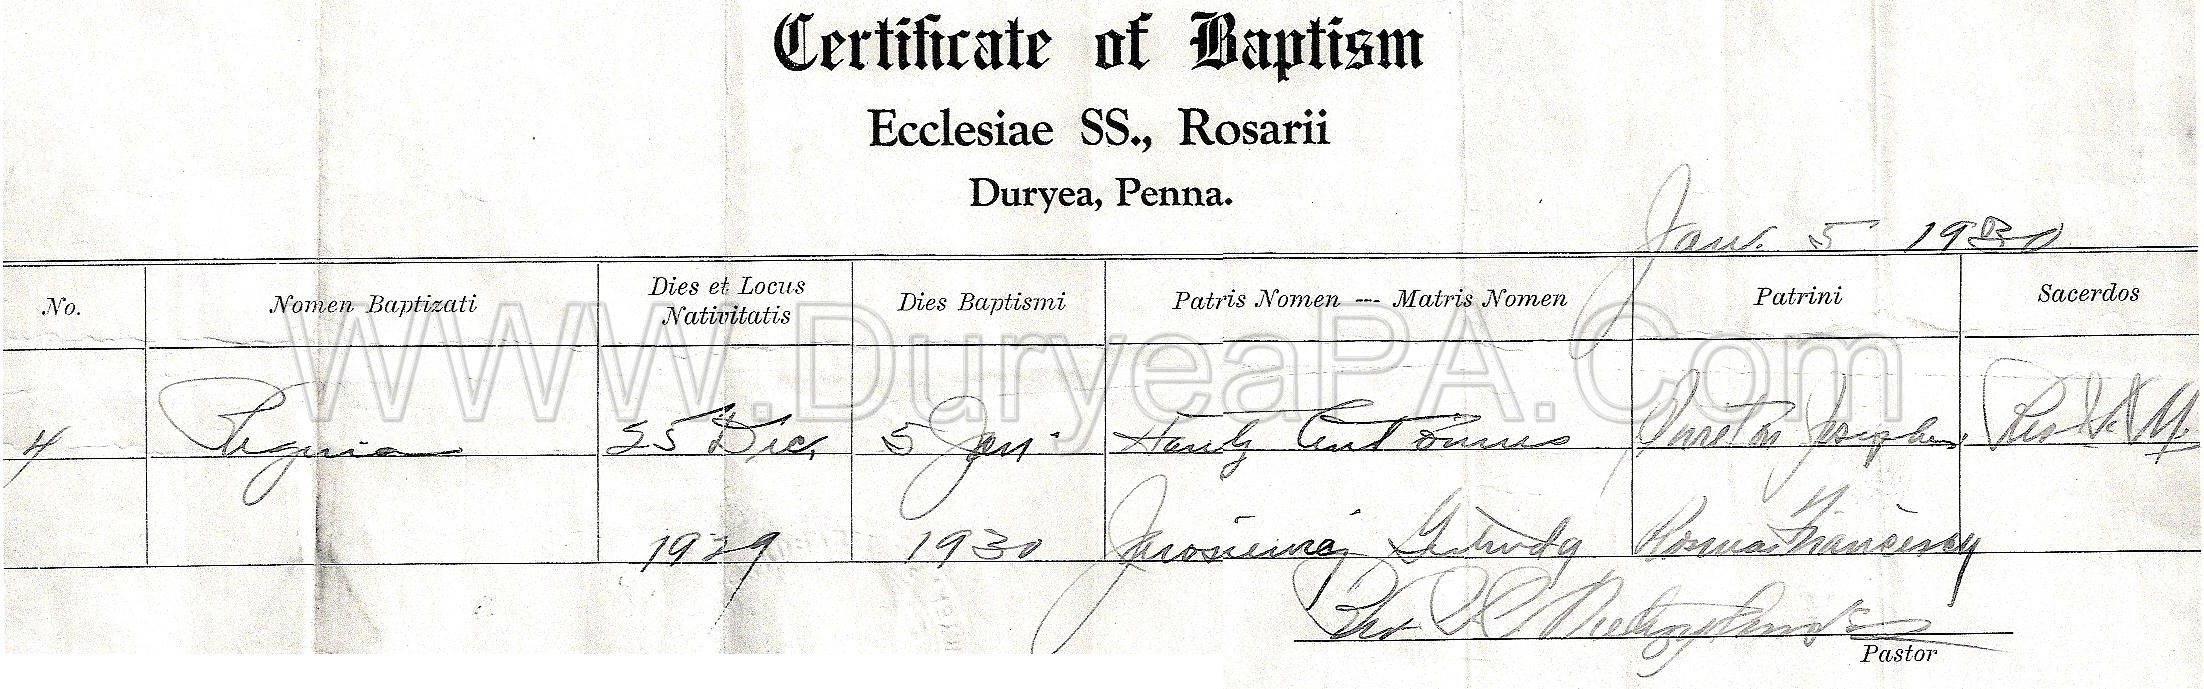 Certificate of Baptism
Ecclesiae SS., Rosarii
Duryea, Penna.
Jan. 5 1930
No.
Nomen Baptizati
Dies et Locus
Nativitatis
Dies Baptismi
Patris Nomen --- Matris Nomen
Patrini
Sacerdos
WWW.DuryeaPA.Com
4
Regina
25 Dec.
5 Jan.
Antonius
Joseph
Rev.
1929
1930
Gertrudy
Rev.
Pastor